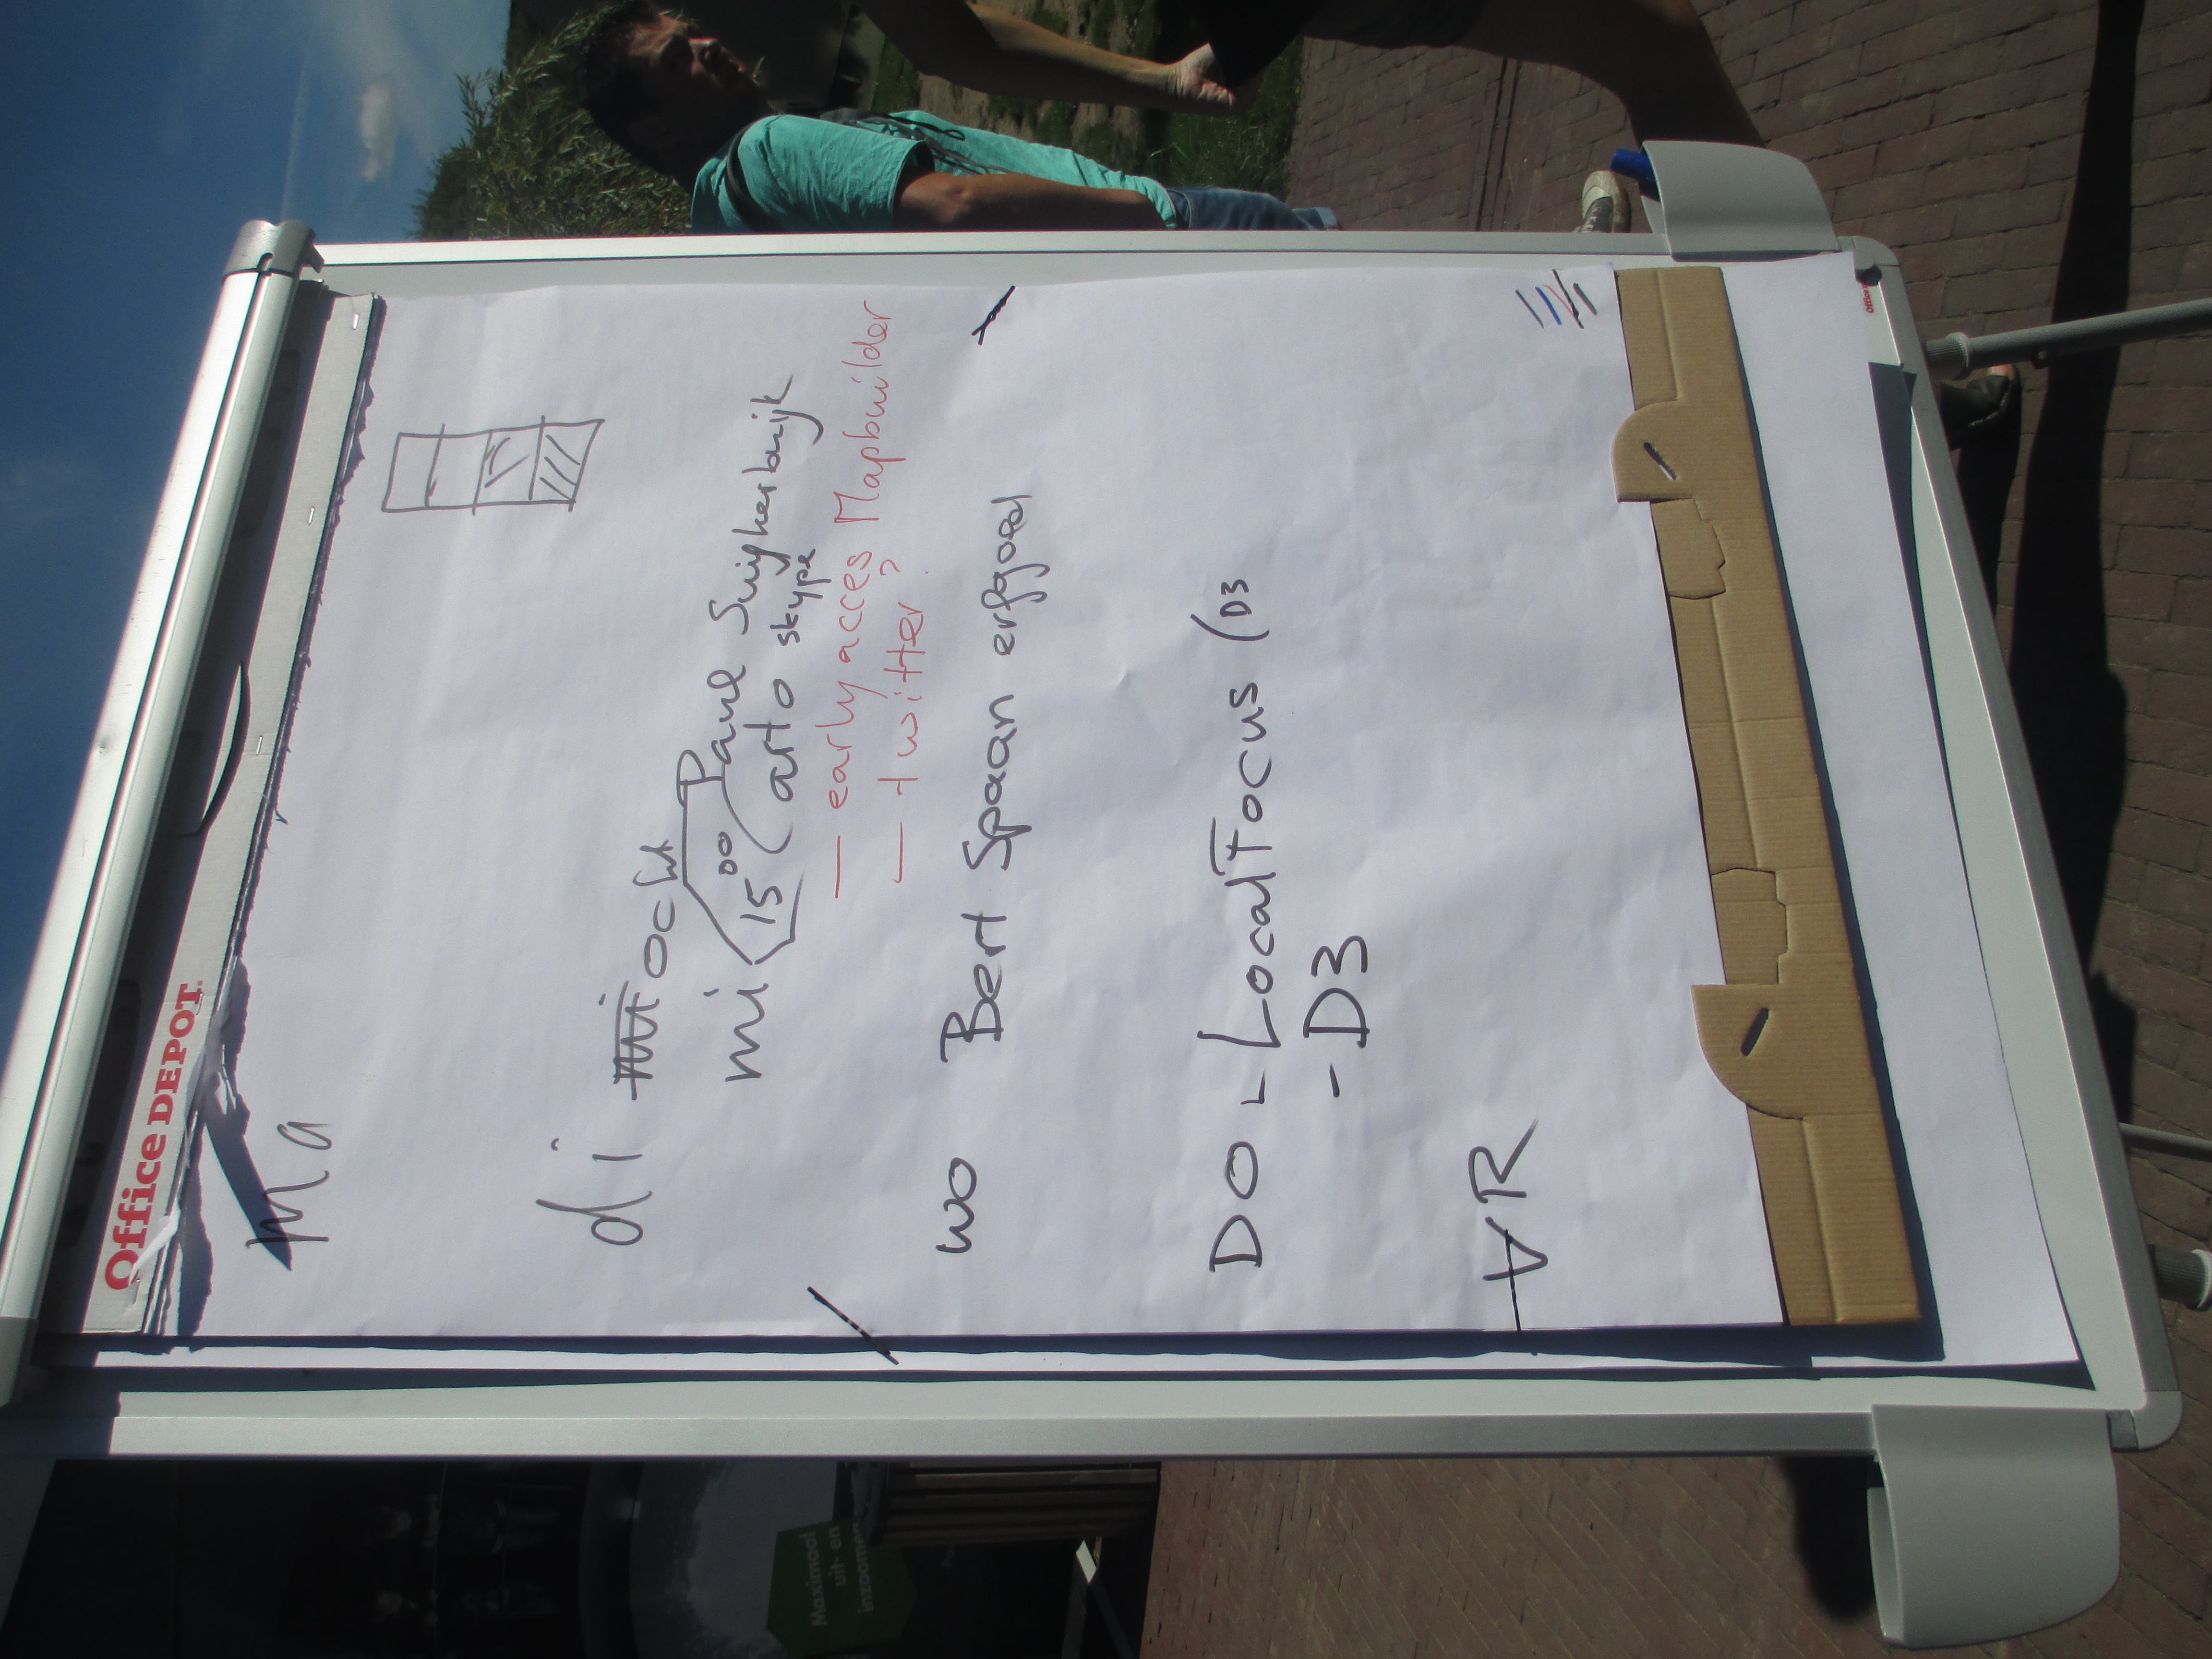 Office DEPOT
Ma
di mi ocht
mi 15 00 Paul Suijkerbuijk
Carto skype
— early acces Mapbuilder
— twitter?
wo Bert Spaan erfgoed
DO - LocalFocus (D3
- D3
VR
Maximaal
uit- en
inzoomen
Office